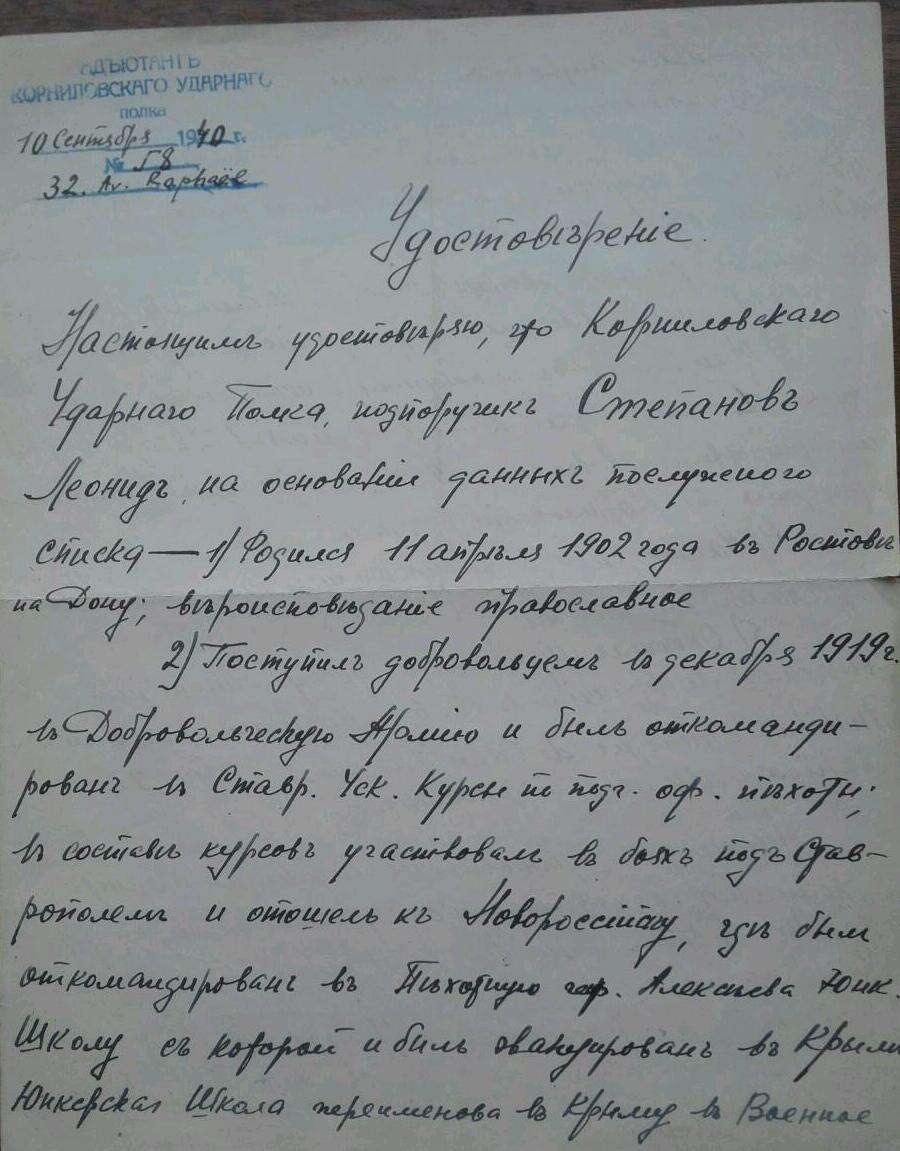 АДЪЮТАНТЪ
КОРНИЛОВСКАГО УДАРНАГО
ПОЛКА
10 Сентября 1940 г.
№ 58
32. Av. Raphaël
Удостовѣреніе.
Настоящимъ удостовѣряю, что Корниловскаго
Ударнаго Полка, подпоручикъ Степановъ
Леонидъ, на основаніи данныхъ послужного
списка — 1) Родился 11 апрѣля 1902 года въ Ростовѣ
на Дону; вѣроисповѣданіе православное
2) Поступилъ добровольцемъ въ декабря 1919 г.
въ Добровольческую Армію и былъ откоманди-
рованъ въ Ставр. Уск. Курсы по подг. оф. пѣхоты;
въ составѣ курсовъ участвовалъ въ бояхъ подъ Став-
рополемъ и отошелъ къ Новороссійску, гдѣ былъ
откомандированъ въ Пѣхотную Алексѣева Юнк.
Школу съ которой и былъ эвакуированъ въ Крымъ
Юнкерская Школа переименова въ Крыму въ Военное